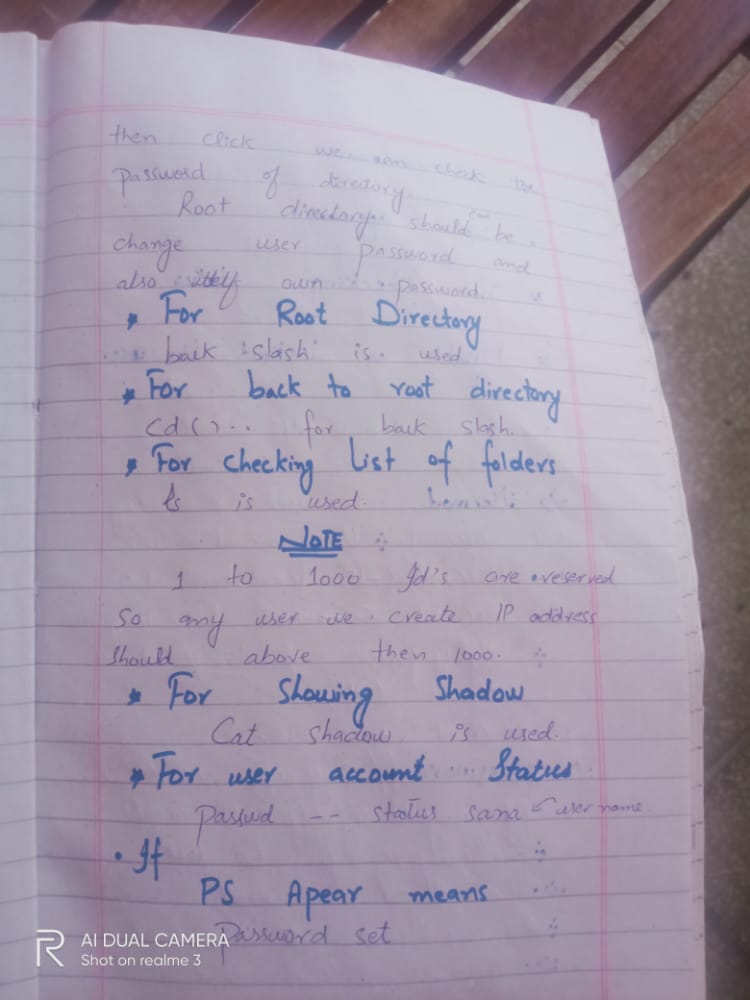 then click we can check the
password of directory.
Root directory should be
change user password and
also itself own password.
* For Root Directory
back slash is used
* For back to root directory
Cd ( ) .. for back slash.
* For checking List of folders
ls is used.
NOTE
1 to 1000 Id's are reserved
so any user we create IP address
should above then 1000.
* For Showing Shadow
Cat shadow is used.
* For user account Status
Passwd -- status sana user name.
• If
PS Apear means
Password set
AI DUAL CAMERA
Shot on realme 3